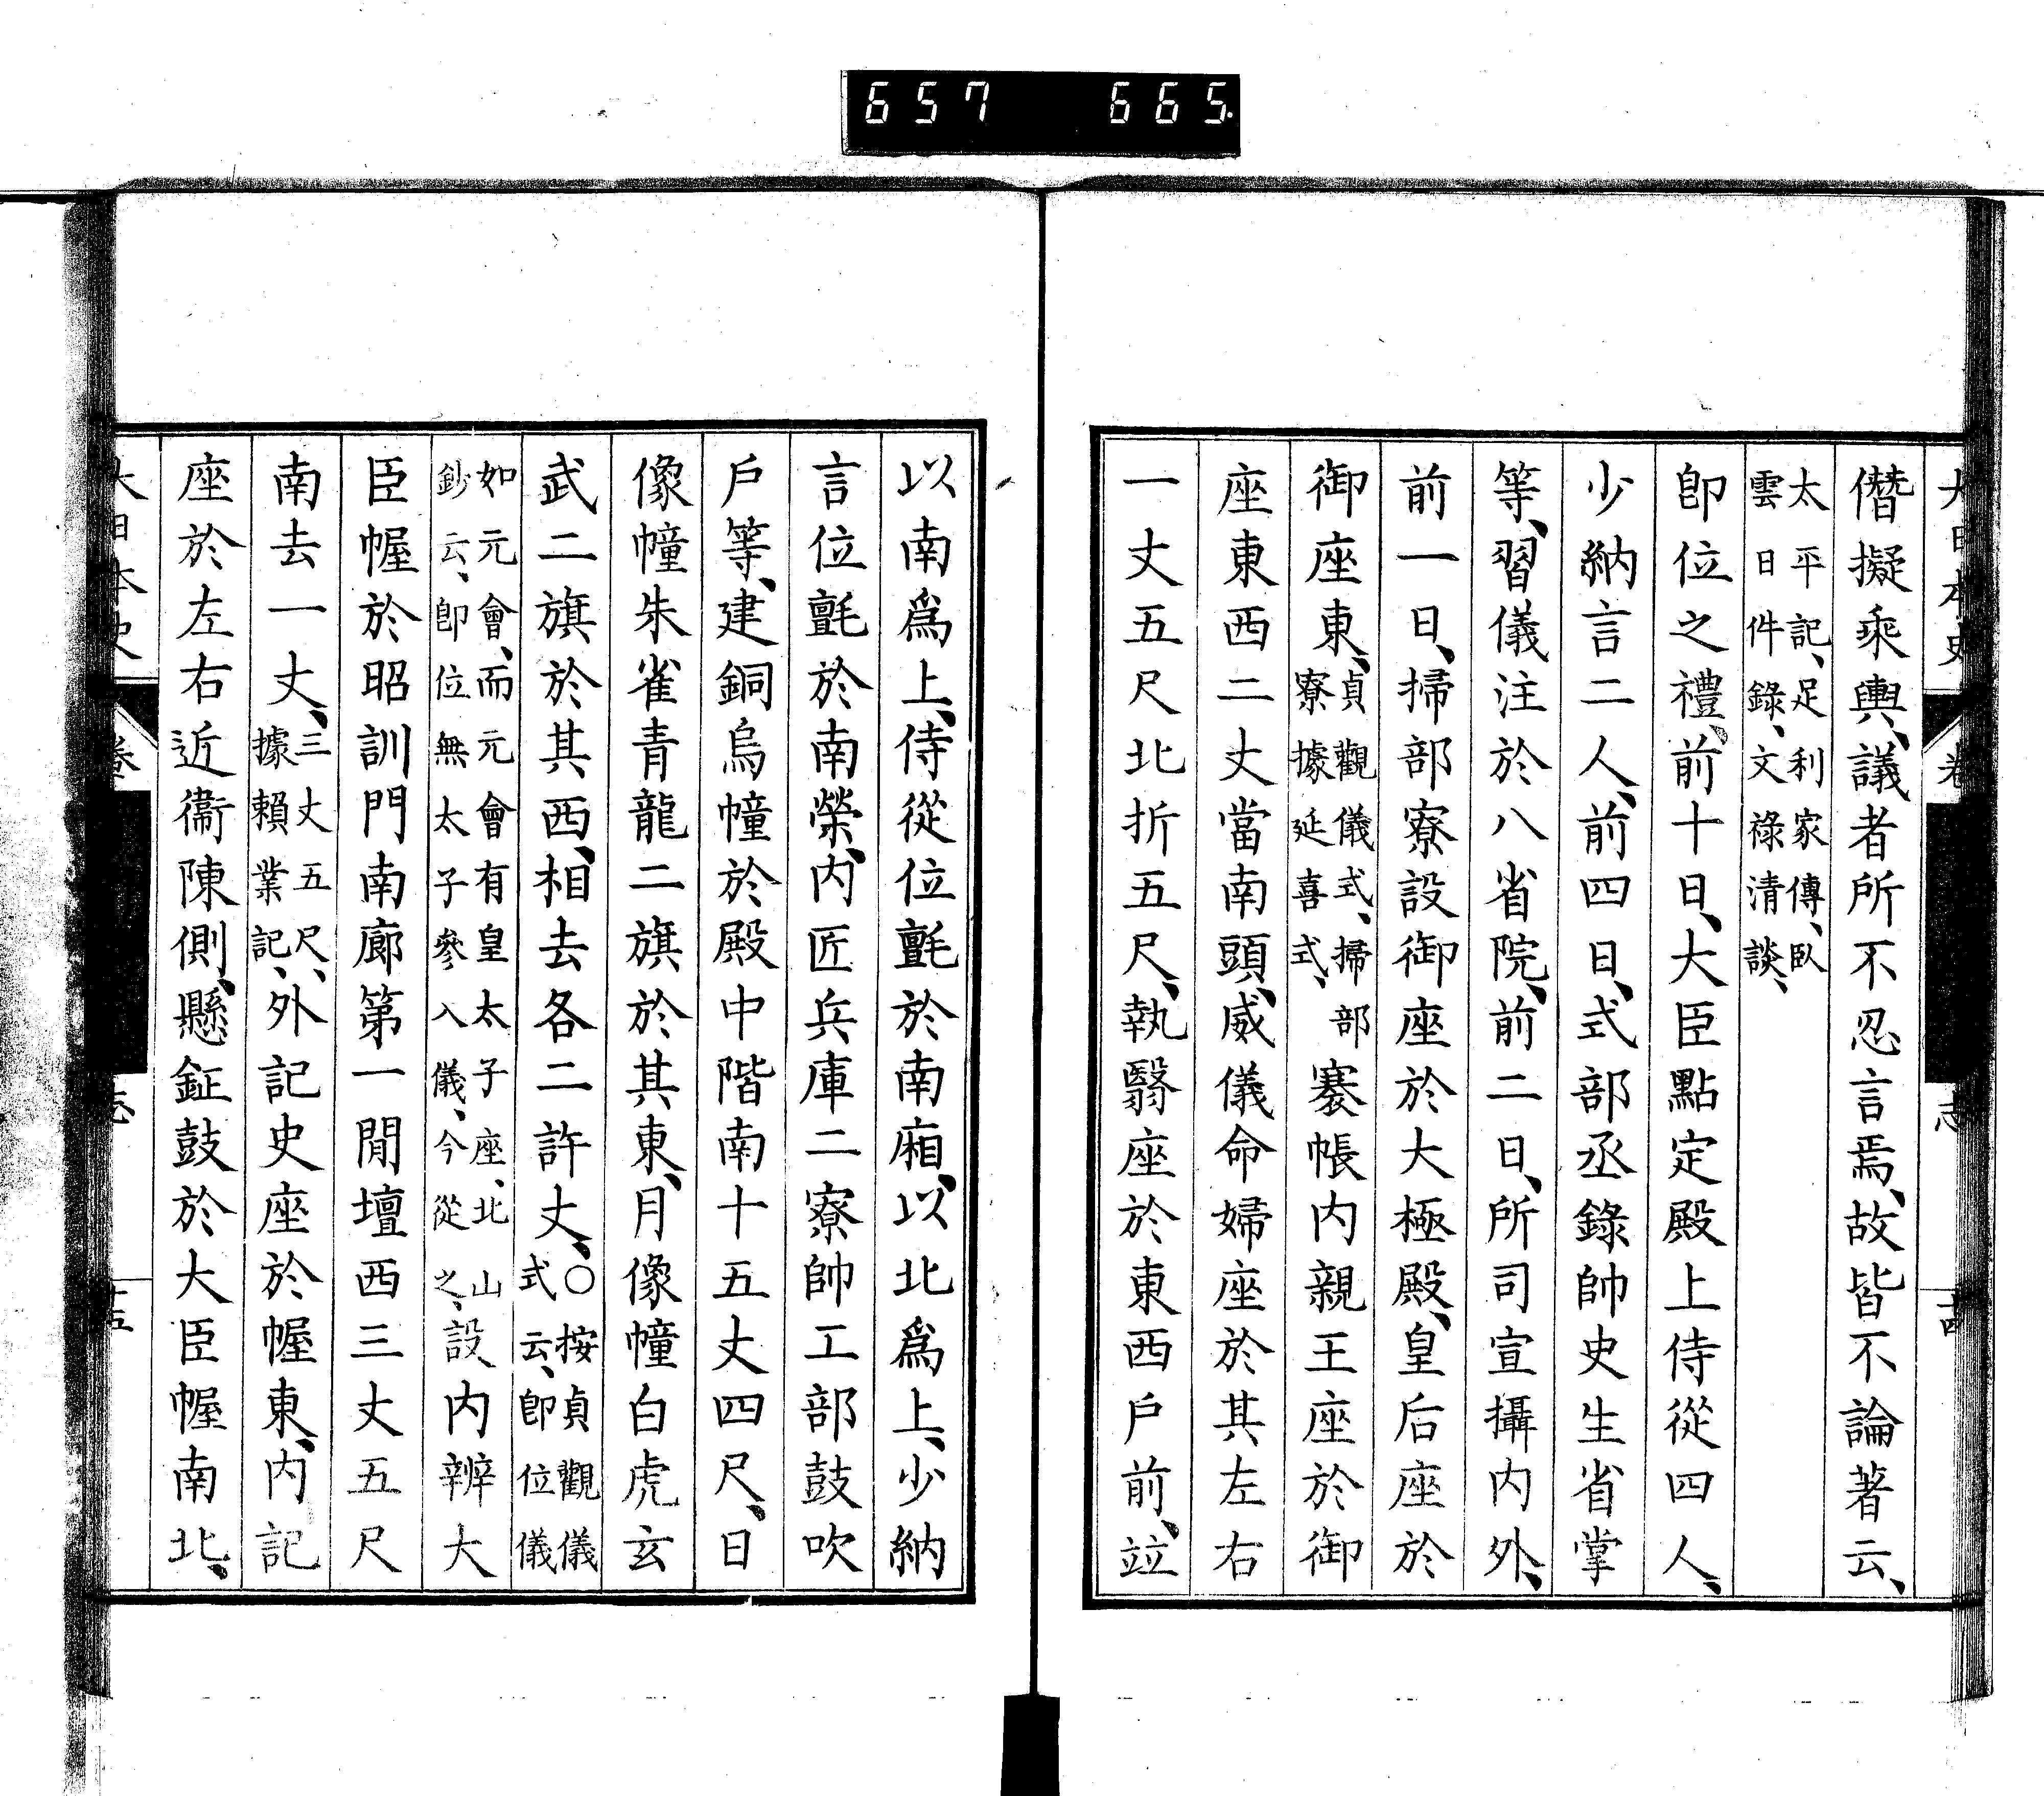 657 665
僭擬乘輿、議者所不忍言焉、故皆不論著云、
太平記、足利家傳、臥
雲日件錄、文祿清談、
卽位之禮、前十日、大臣點定殿上侍從四人、
少納言二人、前四日、式部丞錄帥史生省掌
等、習儀注於八省院、前二日、所司宣攝內外、
前一日、掃部寮設御座於大極殿、皇后座於
御座東、
貞觀儀式、掃部
寮據延喜式、
褰帳內親王座於御
座東西二丈當南頭、威儀命婦座於其左右
一丈五尺北折五尺、執翳座於東西戶前、竝
以南爲上、侍從位氈於南廂、以北爲上、少納
言位氈於南榮、內匠兵庫二寮帥工部鼓吹
戶等、建銅烏幢於殿中階南十五丈四尺、日
像幢朱雀青龍二旗於其東、月像幢白虎玄
武二旗於其西、相去各二許丈、
〇按貞觀儀
式云、卽位儀
如元會、而元會有皇太子座、北山
鈔云、卽位無太子參入儀、今從之、
設內辨大
臣幄於昭訓門南廊第一閒壇西三丈五尺
南去一丈、
三丈五尺、
據賴業記、
外記史座於幄東、內記
座於左右近衞陳側、懸鉦鼓於大臣幄南北、